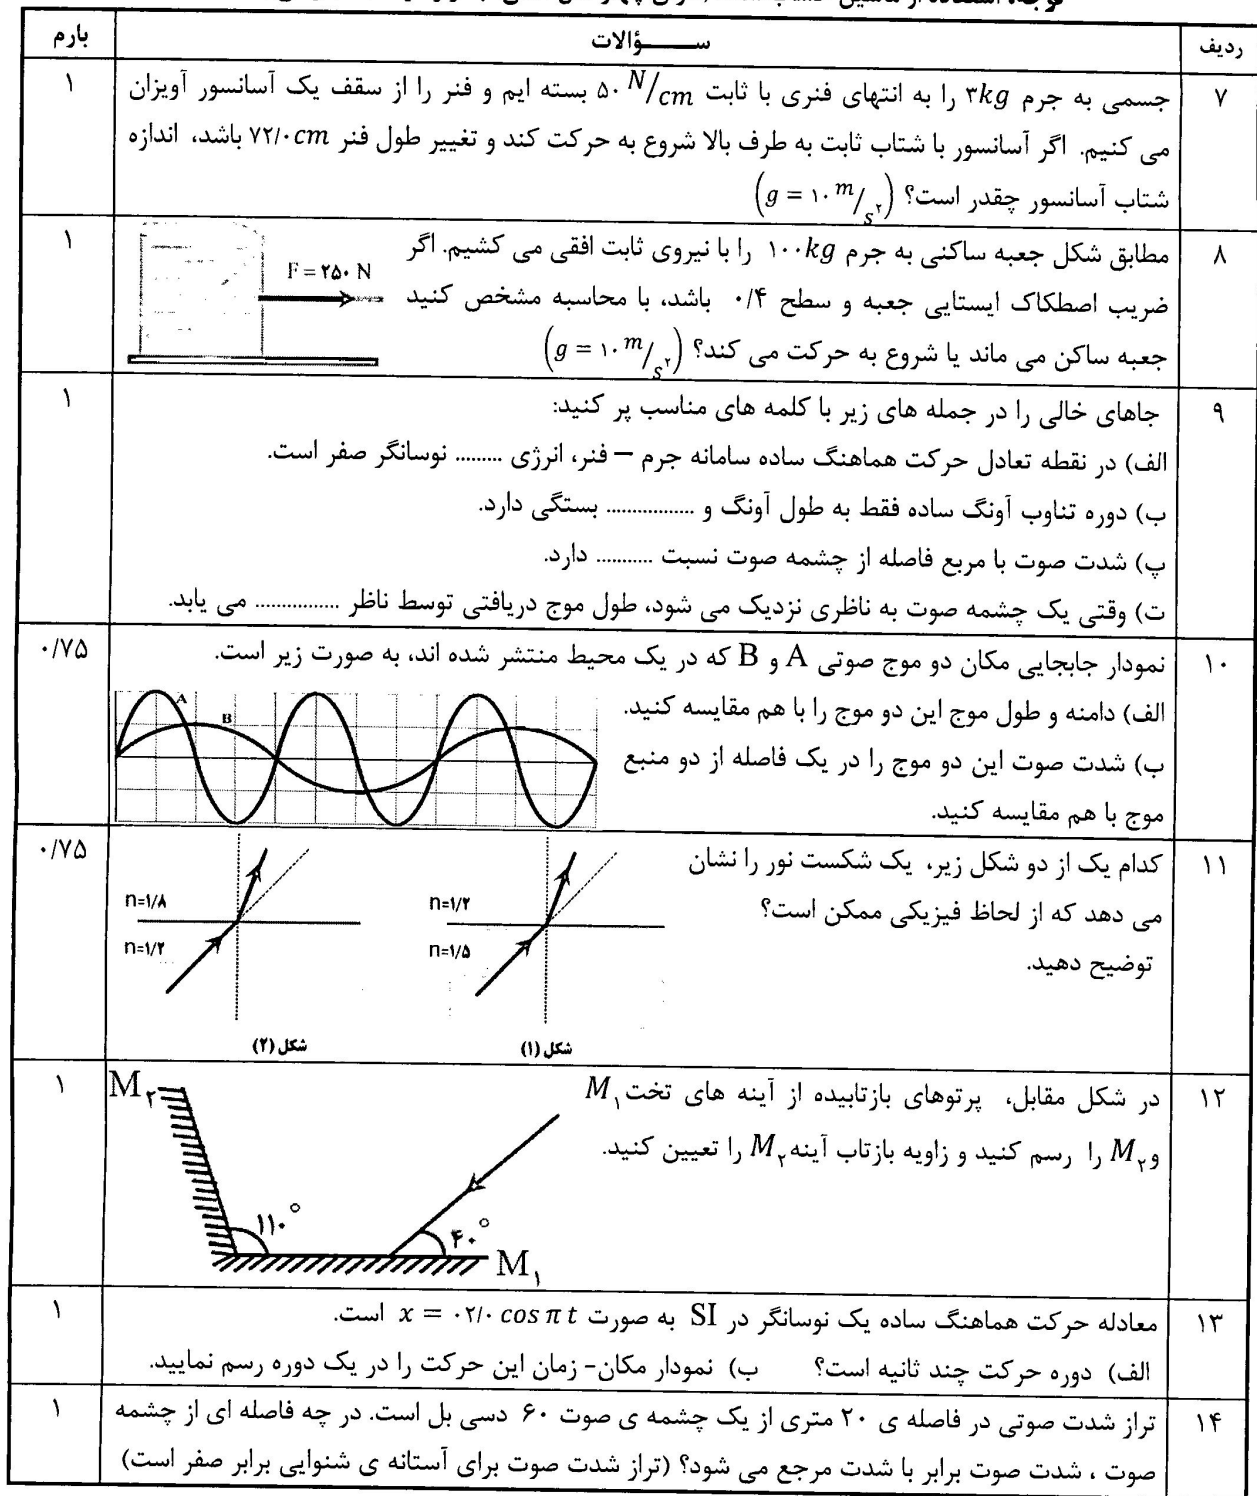 ردیف
ســـــــؤالات
بارم
۷
جسمی به جرم ۳kg را به انتهای فنری با ثابت ۵۰ N/cm بسته ایم و فنر را از سقف یک آسانسور آویزان
۱
می کنیم. اگر آسانسور با شتاب ثابت به طرف بالا شروع به حرکت کند و تغییر طول فنر ۷۲/۰cm باشد، اندازه
شتاب آسانسور چقدر است؟ (g = ۱۰ m/s۲)
۸
مطابق شکل جعبه ساکنی به جرم ۱۰۰kg را با نیروی ثابت افقی می کشیم. اگر
۱
F = ۲۵۰ N
ضریب اصطکاک ایستایی جعبه و سطح ۰/۴ باشد، با محاسبه مشخص کنید
جعبه ساکن می ماند یا شروع به حرکت می کند؟ (g = ۱۰ m/s۲)
۹
جاهای خالی را در جمله های زیر با کلمه های مناسب پر کنید:
۱
الف) در نقطه تعادل حرکت هماهنگ ساده سامانه جرم – فنر، انرژی ......... نوسانگر صفر است.
ب) دوره تناوب آونگ ساده فقط به طول آونگ و ................. بستگی دارد.
پ) شدت صوت با مربع فاصله از چشمه صوت نسبت ........... دارد.
ت) وقتی یک چشمه صوت به ناظری نزدیک می شود، طول موج دریافتی توسط ناظر ................ می یابد.
۱۰
نمودار جابجایی مکان دو موج صوتی A و B که در یک محیط منتشر شده اند، به صورت زیر است.
۰/۷۵
الف) دامنه و طول موج این دو موج را با هم مقایسه کنید.
A
B
ب) شدت صوت این دو موج را در یک فاصله از دو منبع
موج با هم مقایسه کنید.
۱۱
کدام یک از دو شکل زیر، یک شکست نور را نشان
۰/۷۵
می دهد که از لحاظ فیزیکی ممکن است؟
توضیح دهید.
n=۱/۲
n=۱/۵
شکل (۱)
n=۱/۸
n=۱/۲
شکل (۲)
۱۲
در شکل مقابل، پرتوهای بازتابیده از آینه های تخت M۱
۱
و M۲ را رسم کنید و زاویه بازتاب آینه M۲ را تعیین کنید.
M۲
۱۱۰°
۴۰°
M۱
۱۳
معادله حرکت هماهنگ ساده یک نوسانگر در SI به صورت x = ۰۲/۰ cos π t است.
۱
الف) دوره حرکت چند ثانیه است؟ ب) نمودار مکان- زمان این حرکت را در یک دوره رسم نمایید.
۱۴
تراز شدت صوتی در فاصله ی ۲۰ متری از یک چشمه ی صوت ۶۰ دسی بل است. در چه فاصله ای از چشمه
۱
صوت ، شدت صوت برابر با شدت مرجع می شود؟ (تراز شدت صوت برای آستانه ی شنوایی برابر صفر است)